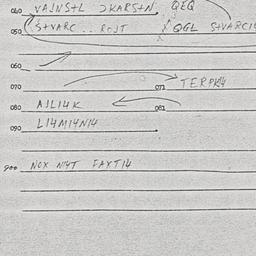 060 VAJNS+L JKARS+N, QEQ
050 S+VARC .. ROJT QGL S+VARC
060
070 071 TERPK4
080 AJLI4K 081
090 LI4MI4NI4
900 NOX NI4T FAXTI4